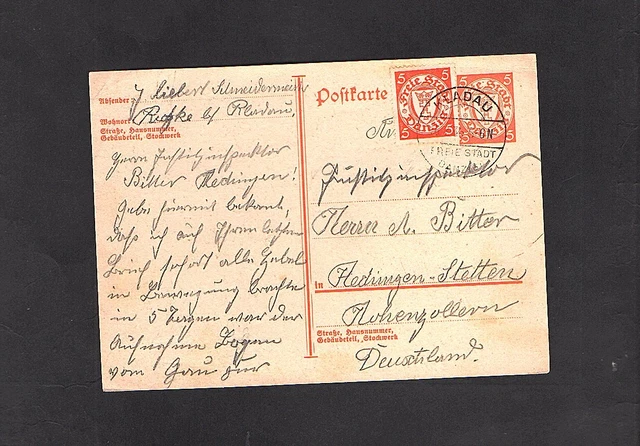 Absender:
J. Siebert Schneidermeister
Wohnort
Rexke b/ Kladau,
Straße, Hausnummer,
Gebäudeteil, Stockwerk
Herrn Justizinspektor
Bitter Hedingen!
Gebe hiermit bekannt,
daß ich auf Ihren letzten
Brief sofort alle Hebel
in Bewegung brachte
in 5 Tagen war der
Aufnahme Bogen
vom Gau zur
Postkarte
5 5
Freie Stadt
Danzig
5 5
5 5
Stadt
5
KLADAU
FREIE STADT
DANZIG
Justizinspektor
Herrn A. Bitter
in Hedingen-Stetten
Hohenzollern
Straße, Hausnummer,
Gebäudeteil, Stockwerk
Deutschland.